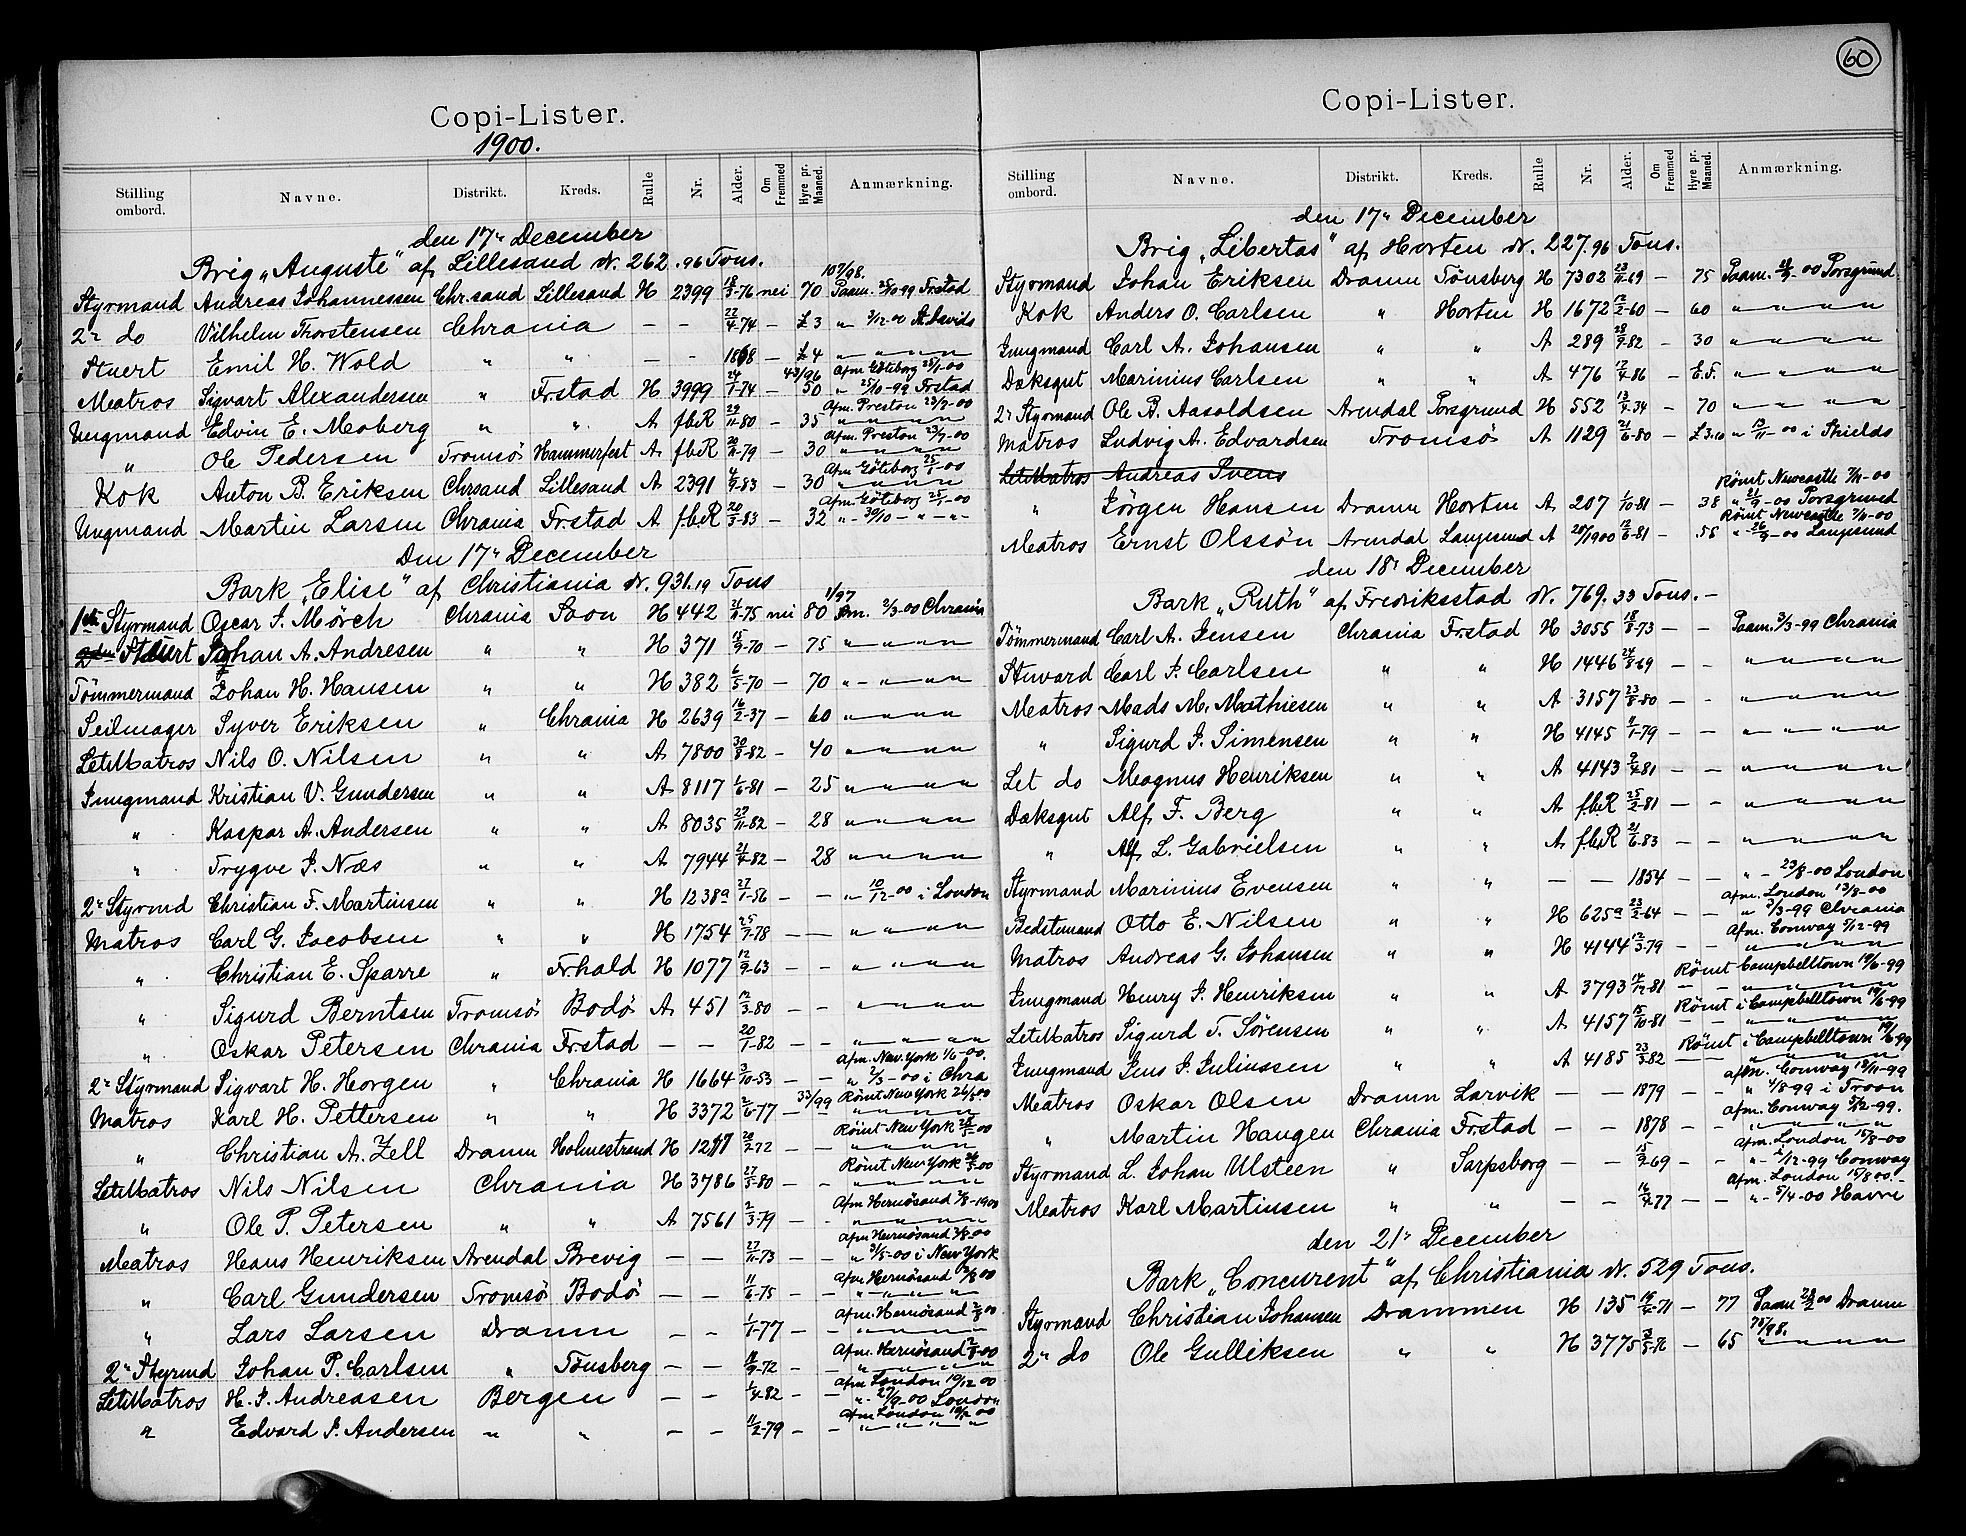 Copi-Lister.
1900.
Stilling ombord. Navne. Distrikt. Kreds. Rulle Nr. Alder. Om Fremmed Hyre pr. Maaned. Anmærkning.
den 17. December
Brig „Auguste" af Lillesand N. 262.96 Tons.
107/98.
Styrmand Andreas Johannessen Chr.sand Lillesand H 2399 18/3-76 nei 70 Paam. 25/10-99 Frstad
2. do Vilhelm Thorstensen Chrania — — 22/4-74 — £3 " 3/12 00 St. Davids
Stuert Emil H. Wold " " — — 1868 — £4 " " " "
43/96 Afm Göteborg 25/1-00
Matros Sigvart Alexandersen " Frstad H 3999 24/1-74 — 50 " 25/10-99 Frstad
Afm. Preston 23/7-00
Ungmand Edvin E. Moberg " " A fbR 29/11-80 — 35 " " " "
Afm. Preston 23/7-00
" Ole Pedersen Tromsö Hammerfest A fbR 20/11-79 — 30 " " " "
Afm Göteborg 25/1-00
Kok Anton B. Eriksen Chrsand Lillesand A 2391 4/9-83 — 30 " " " "
Afm Göteborg 25/1-00
Ungmand Martin Larsen Chrania Fr.stad A f.b.R 20/3-83 — 32 " - 30/10 - " - " -
Den 17. December
Bark „Elise" af Christiania N. 931.19 Tons
1/97
1ste Styrmand Oscar J. Mörch Chrania Soon H 442 2/11-75 nei 80 Pm. 2/3-00 Chrania
2den Stuert Johan A. Andresen " " H 371 15/9-70 — 75 " " " "
Tömmermand Johan H. Hansen " " H 382 6/5-70 — 70 " " " "
Seilmager Syver Eriksen " Chrania H 2639 16/2-37 — 60 " " " "
LetMatros Nils O. Nilsen " " A 7800 30/8-82 — 40 " " " "
Jungmand Kristian V. Gundersen " " A 8117 1/6-81 — 25 " " " "
" Kaspar A. Andersen " " A 8035 27/11-82 — 28 " " " "
" Trygve J. Næs " " A 7944 21/4-82 — 28 " " " "
2. Styrmd Christian F. Martinsen " " H 1238a 27/1-56 — — " 10/12-00 i London
Matros Carl G. Jacobsen " " H 1754 25/7-78 — — " " " "
" Christian E. Sparre " Frhald H 1077 12/9-63 — — " " " "
" Sigurd Berntsen Tromsö Bodö A 451 12/3-80 — — " " " "
" Oskar Petersen Chrania Frstad — — 20/1-82 — — " " " "
Afm. New York 1/6-00.
2. Styrmand Sigvart H. Horgen " Chrania H 1664 3/10-53 — — " 2/3-00 i Chra
33/99 Römt New York 26/5 00
Matros Karl H. Pettersen " " H 3372 2/6-77 — " " " "
Römt New York 26/5 00
" Christian A. Zell Dramn Holmestrand H 1217 20/2-72 — — " " " "
Römt New York 26/5-00
LetMatros Nils Nilsen Chrania H 3786 27/5-80 — — " " " "
Afm Hernösand 2/8-1900
" Ole P. Petersen " " A 7561 2/3-79 — — " " " "
Afm Hernösand 2/8-00
Matros Hans Henriksen Arendal Brevig — — 27/11-73 — — " 3/5-00 i New York
Afm. Hernösand 2/8 00
" Carl Gundersen Tromsö Bodö — — 11/6-75 — — " " " "
Afm. Hernösand 2/8 00
" Lars Larsen Dramn — — 1/1-77 — — " " " "
Afm. Hernösand 2/8-00
2. Styrmd Johan P. Carlsen " Tönsberg — — 18/9-72 — — " " " "
Afm London 10/12 00
LetMatros H. J. Andreasen Bergen — — 1/4-82 — — " 27/9-00 London
Afm London 10/12 00
" Edvard J. Andersen " " — — 11/2-79 — — " " " "
60
Copi-Lister.
Stilling ombord. Navne. Distrikt. Kreds. Rulle Nr. Alder. Om Fremmed Hyre pr. Maaned. Anmærkning.
den 17. December
Brig „Libertas" af Horten N. 227.96 Tons.
Styrmand Johan Eriksen Dramn Tönsberg H 7302 23/11-69 — 75 Paam. 21/9-00 Porsgrund
Kok Anders O. Carlsen " Horten H 1672 12/2-60 — 60 " " " "
Jungmand Carl A. Johansen " " A 289 28/9-82 — 30 " " " "
Dæksgut Marinius Carlsen " " A 476 12/4-86 — E.F. " " " "
2. Styrmand Ole B. Aasoldsen Arendal Porsgrund H 552 13/4-34 — 70 " " " "
Matros Ludvig A. Edvardsen Tromsö A 1129 21/6-80 — £3.10 " 13/11-00 i Shields
LetMatros Andreas Svens
Römt Newcastle 7/11-00
" Jörgen Hansen Dramn Horten A 207 1/10-81 — 38 " 21/9-00 Porsgrund
Römt Newcastle 7/11-00
Matros Ernst Olssön Arendal Langesund A 28/1900 12/6-81 — 55 " 26/9-00 Langesund
den 18. December
Bark „Ruth" af Fredriksstad N. 769.33 Tons. —
Tömmermand Carl A. Jensen Chrania Frstad H 3055 18/8-73 — — Paam. 3/3-99 Chrania
Stuvard Carl J. Carlsen " " H 1446 24/8-69 — — " " " "
Matros Mads M. Mathiesen " " A 3157 23/8-80 — — " " " "
" Sigurd J. Simensen " " H 4145 4/1-79 — — " " " "
Let do Magnus Henriksen " " A 4143 9/4-81 — — " " " "
Dæksgut Alf F. Berg " " A f.b.R 25/2-81 — — " " " "
" Alf L. Gabrielsen " " A f.b.R 21/6-83 — — " " " "
Styrmand Marinius Evensen " " — — 1854 — — " - 23/8-00 London
Afm. London 13/8-00
Bedstemand Otto E. Nilsen " " H 625a 23/2-64 — — " 3/3-99 Chrania
Afm. Conway 5/12-99
Matros Andreas G. Johansen " " H 4144 12/3-79 — — " " " "
Römt Campbelltown 19/6-99
Jungmand Henry J. Henriksen " " A 3793 14/12-81 — — " " " "
Römt i Campbelltown 19/6-99
LetMatros Sigurd T. Sörensen " " A 4157 15/10-81 — — " " " "
Römt i Campbelltown 19/6-99
Jungmand Jens J. Juliussen " " A 4185 23/3-82 — — " " " "
afm. Conway 18/11-99
Matros Oskar Olsen Dramn Larvik — — 1879 — — " 4/8-99 i Troon
afm. Conway 5/12-99.
" Martin Haugen Chrania Frstad — — 1878 — — " " " "
Afm. London 15/8-00
Styrmand L. Johan Ulsteen " Sarpsborg — — 15/9-69 — — " - 2/12-99 Conway
Afm. London 15/8 00.
Matros Karl Martinsen " " — — 16/4-77 — — " - 5/4-00 Havre
den 21. December
Bark „Concurent" af Christiania N. 529 Tons.
Styrmand Christian Johansen Drammen H 135 19/4-71 — 77 Paam 28/2 00 Dramn
78/98.
2. do Ole Gulliksen " " H 3775 — 65 " " " "